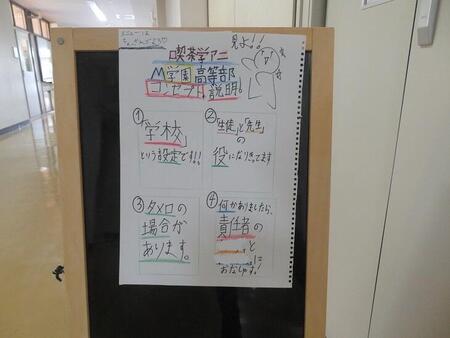 見よ!!
喫茶学アニ
M学園高等部
コンセプト説明!
①
「学校」
という設定です!!
②
「生徒」と「先生」
の
役になりきってます
③タメロの
場合が
あります。
④何かありましたら、
責任者の
と
に
おねしゃす!